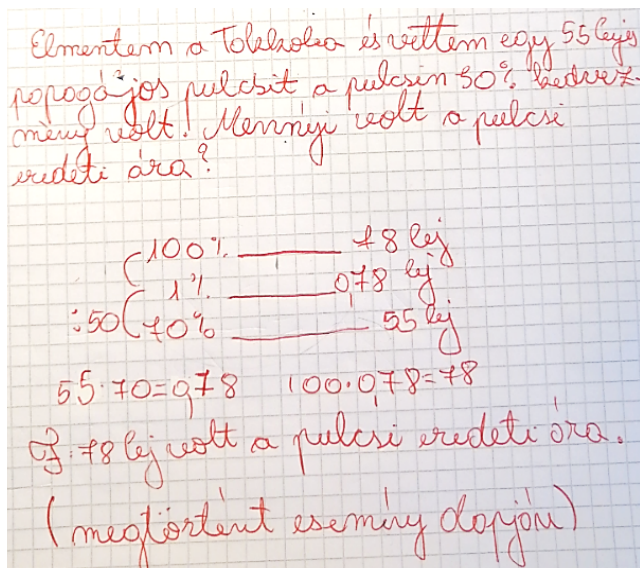 Elmentem a Tokkoba és vettem egy 55 lejes
popogájos pulcsit a pulcsin 30% kedvez-
mény volt. Mennyi volt a pulcsi
eredeti ára?
100% 78 lej
1% 0,78 lej
:50 70% 55 lej
55:70=0,78 100·0,78=78
F: 78 lej volt a pulcsi eredeti ára.
(megtörtént esemény alapján)